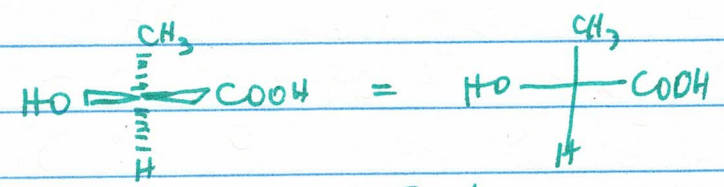 CH3
HO COOH = HO COOH
H
CH3
H